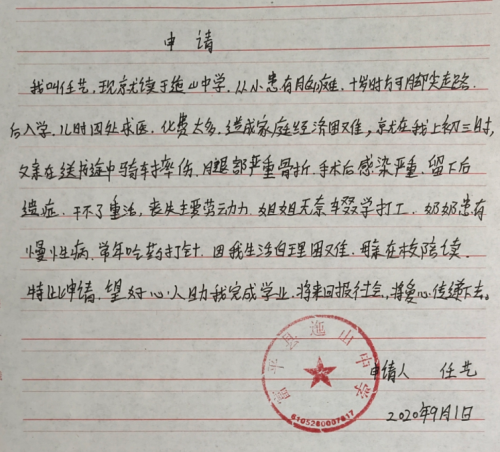 申请
我叫任艺,现就读于迤山中学。从小患有脑瘫,十岁时方可脚尖走路
后入学,儿时四处求医,化费太多,造成家庭经济困难,就在我上初三时,
父亲在送我途中骑车摔伤,腿部严重骨折,手术后感染严重,留下后
遗症,干不了重活,丧失主要劳动力,姐姐无奈辍学打工,奶奶患有
慢性病,常年吃药打针,因我生活自理困难,母亲在校陪读.
特此申请,望好心人助我完成学业,将来回报社会,将爱心传递下去。
申请人 任艺
2020年9月1日
富平县迤山中学
6105280007617